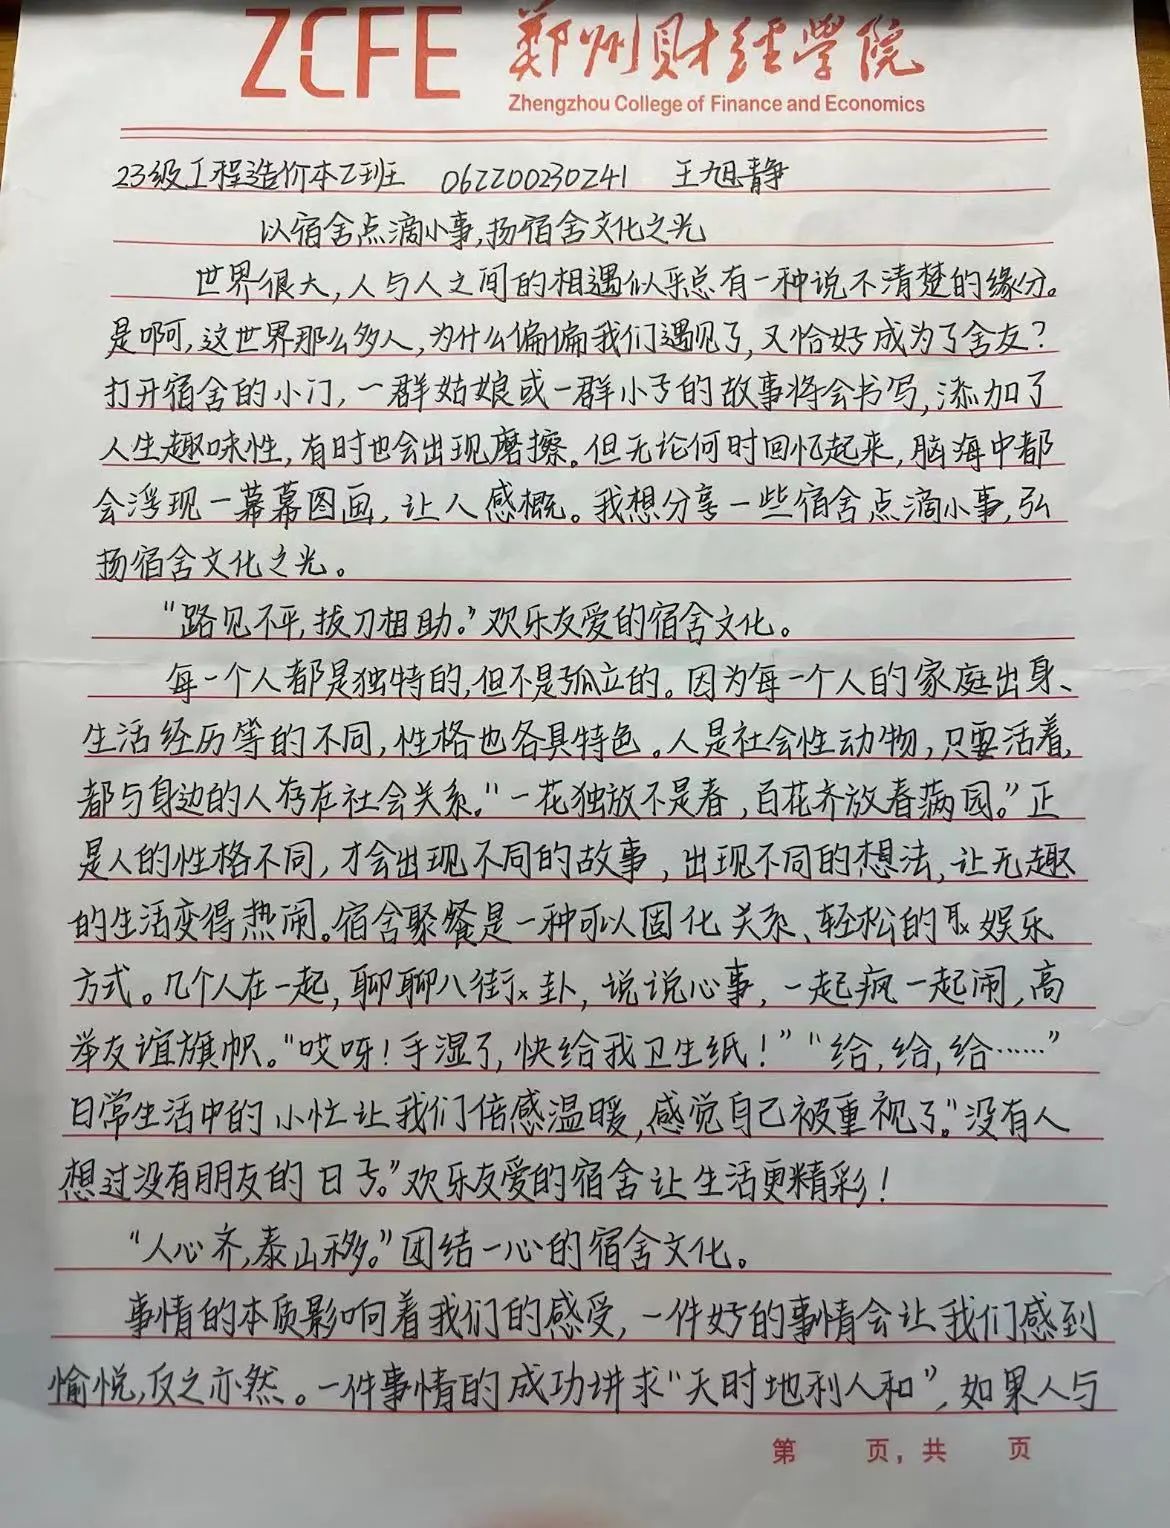 ZCFE 郑州财经学院
Zhengzhou College of Finance and Economics
23级工程造价本2班 062200230241 王旭静
以宿舍点滴小事,扬宿舍文化之光
世界很大,人与人之间的相遇似乎总有一种说不清楚的缘分。
是啊,这世界那么多人,为什么偏偏我们遇见了,又恰好成为了舍友?
打开宿舍的小门,一群姑娘或一群小子的故事将会书写,添加了
人生趣味性,有时也会出现磨擦。但无论何时回忆起来,脑海中都
会浮现一幕幕图画,让人感概。我想分享一些宿舍点滴小事,弘
扬宿舍文化之光。
“路见不平,拔刀相助。”欢乐友爱的宿舍文化。
每一个人都是独特的,但不是孤立的。因为每一个人的家庭出身、
生活经历等的不同,性格也各具特色。人是社会性动物,只要活着,
都与身边的人存在社会关系。“一花独放不是春,百花齐放春满园。”正
是人的性格不同,才会出现不同的故事,出现不同的想法,让无趣
的生活变得热闹。宿舍聚餐是一种可以固化关系、轻松的娱乐
方式。几个人在一起,聊聊八街卦,说说心事,一起疯一起闹,高
举友谊旗帜。“哎呀!手湿了,快给我卫生纸!”“给,给,给……”
日常生活中的小忙让我们倍感温暖,感觉自己被重视了。“没有人
想过没有朋友的日子。”欢乐友爱的宿舍让生活更精彩!
“人心齐,泰山移。”团结一心的宿舍文化。
事情的本质影响着我们的感受,一件好的事情会让我们感到
愉悦,反之亦然。一件事情的成功讲求“天时地利人和”,如果人与
第 页,共 页